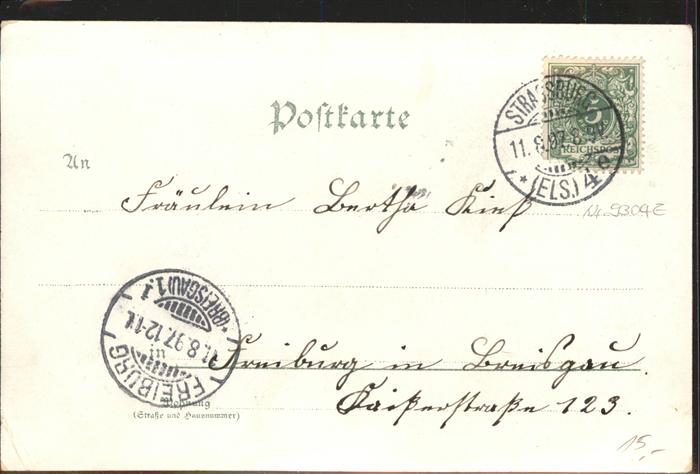 Postkarte
5
REICHSPOST
STRASSBURG
11.8.97.8-9V.
* (ELS.) 4 e
An
Fräulein Bertha Kieß
Nr. 9304E
*(BREISGAU) 1.
11.8.97.12-1
FREIBURG
in
Freiburg in Breisgau.
Wohnung
(Straße und Hausnummer)
Kaißerstraße 123.
15,-